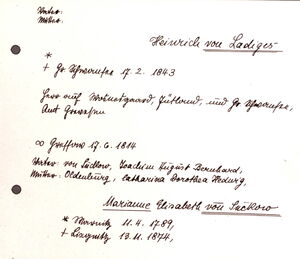 Vater:
Mutter:
Heinrich von Ladiges
*
+ Gr 17. 2. 1843
Herr auf Jütland, und Gr
Amt
∞ Gressow 17. 6. 1814
Vater: von Lückow, Joachim August Bernhard,
Mutter: Oldenburg, Catharina Dorothea Hedwig,
Marianne Elisabeth von Lückow
* 11. 4. 1789,
+ 13. 11. 1874,